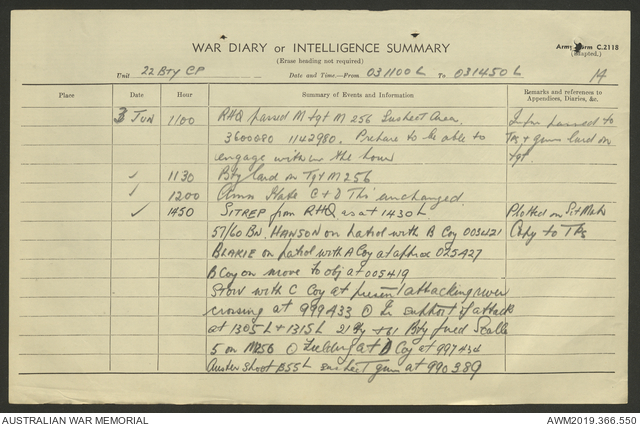 WAR DIARY or INTELLIGENCE SUMMARY
(Erase heading not required)
Army Form C.2118
(Adapted.)
Unit 22 Bty CP Date and Time—From 031100L To 031450L 14
Place Date Hour Summary of Events and Information Remarks and references to Appendices, Diaries, &c.
3 JUN 1100 RHQ passed M tgt M 256 Suspect Area Infm passed to
3600680 1142980. Prepare to be able to Tps & guns laid on
engage within the hour tgt.
✓ 1130 Bty laid on Tgt M256
✓ 1200 Ammo State C & D Tps unchanged.
✓ 1450 SITREP from RHQ as at 1430L Plotted on Sit Map
57/60 Bn. HANSON on patrol with B Coy 003421 Copy to Tps
BLAKIE on patrol with A Coy at approx 025427
B Coy on move to obj at 005419
Stow with C Coy at present attacking river
crossing at 999433 In support of attack
at 1305L & 1315L 21 Bty & 61 Bty fired Scale
5 on M256 Fielding at D Coy at 997434
Auster shoot 1355L suspect gun at 990389
AUSTRALIAN WAR MEMORIAL AWM2019.366.550